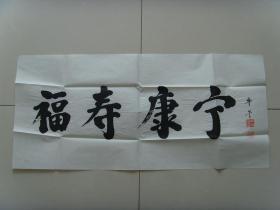 福寿康宁